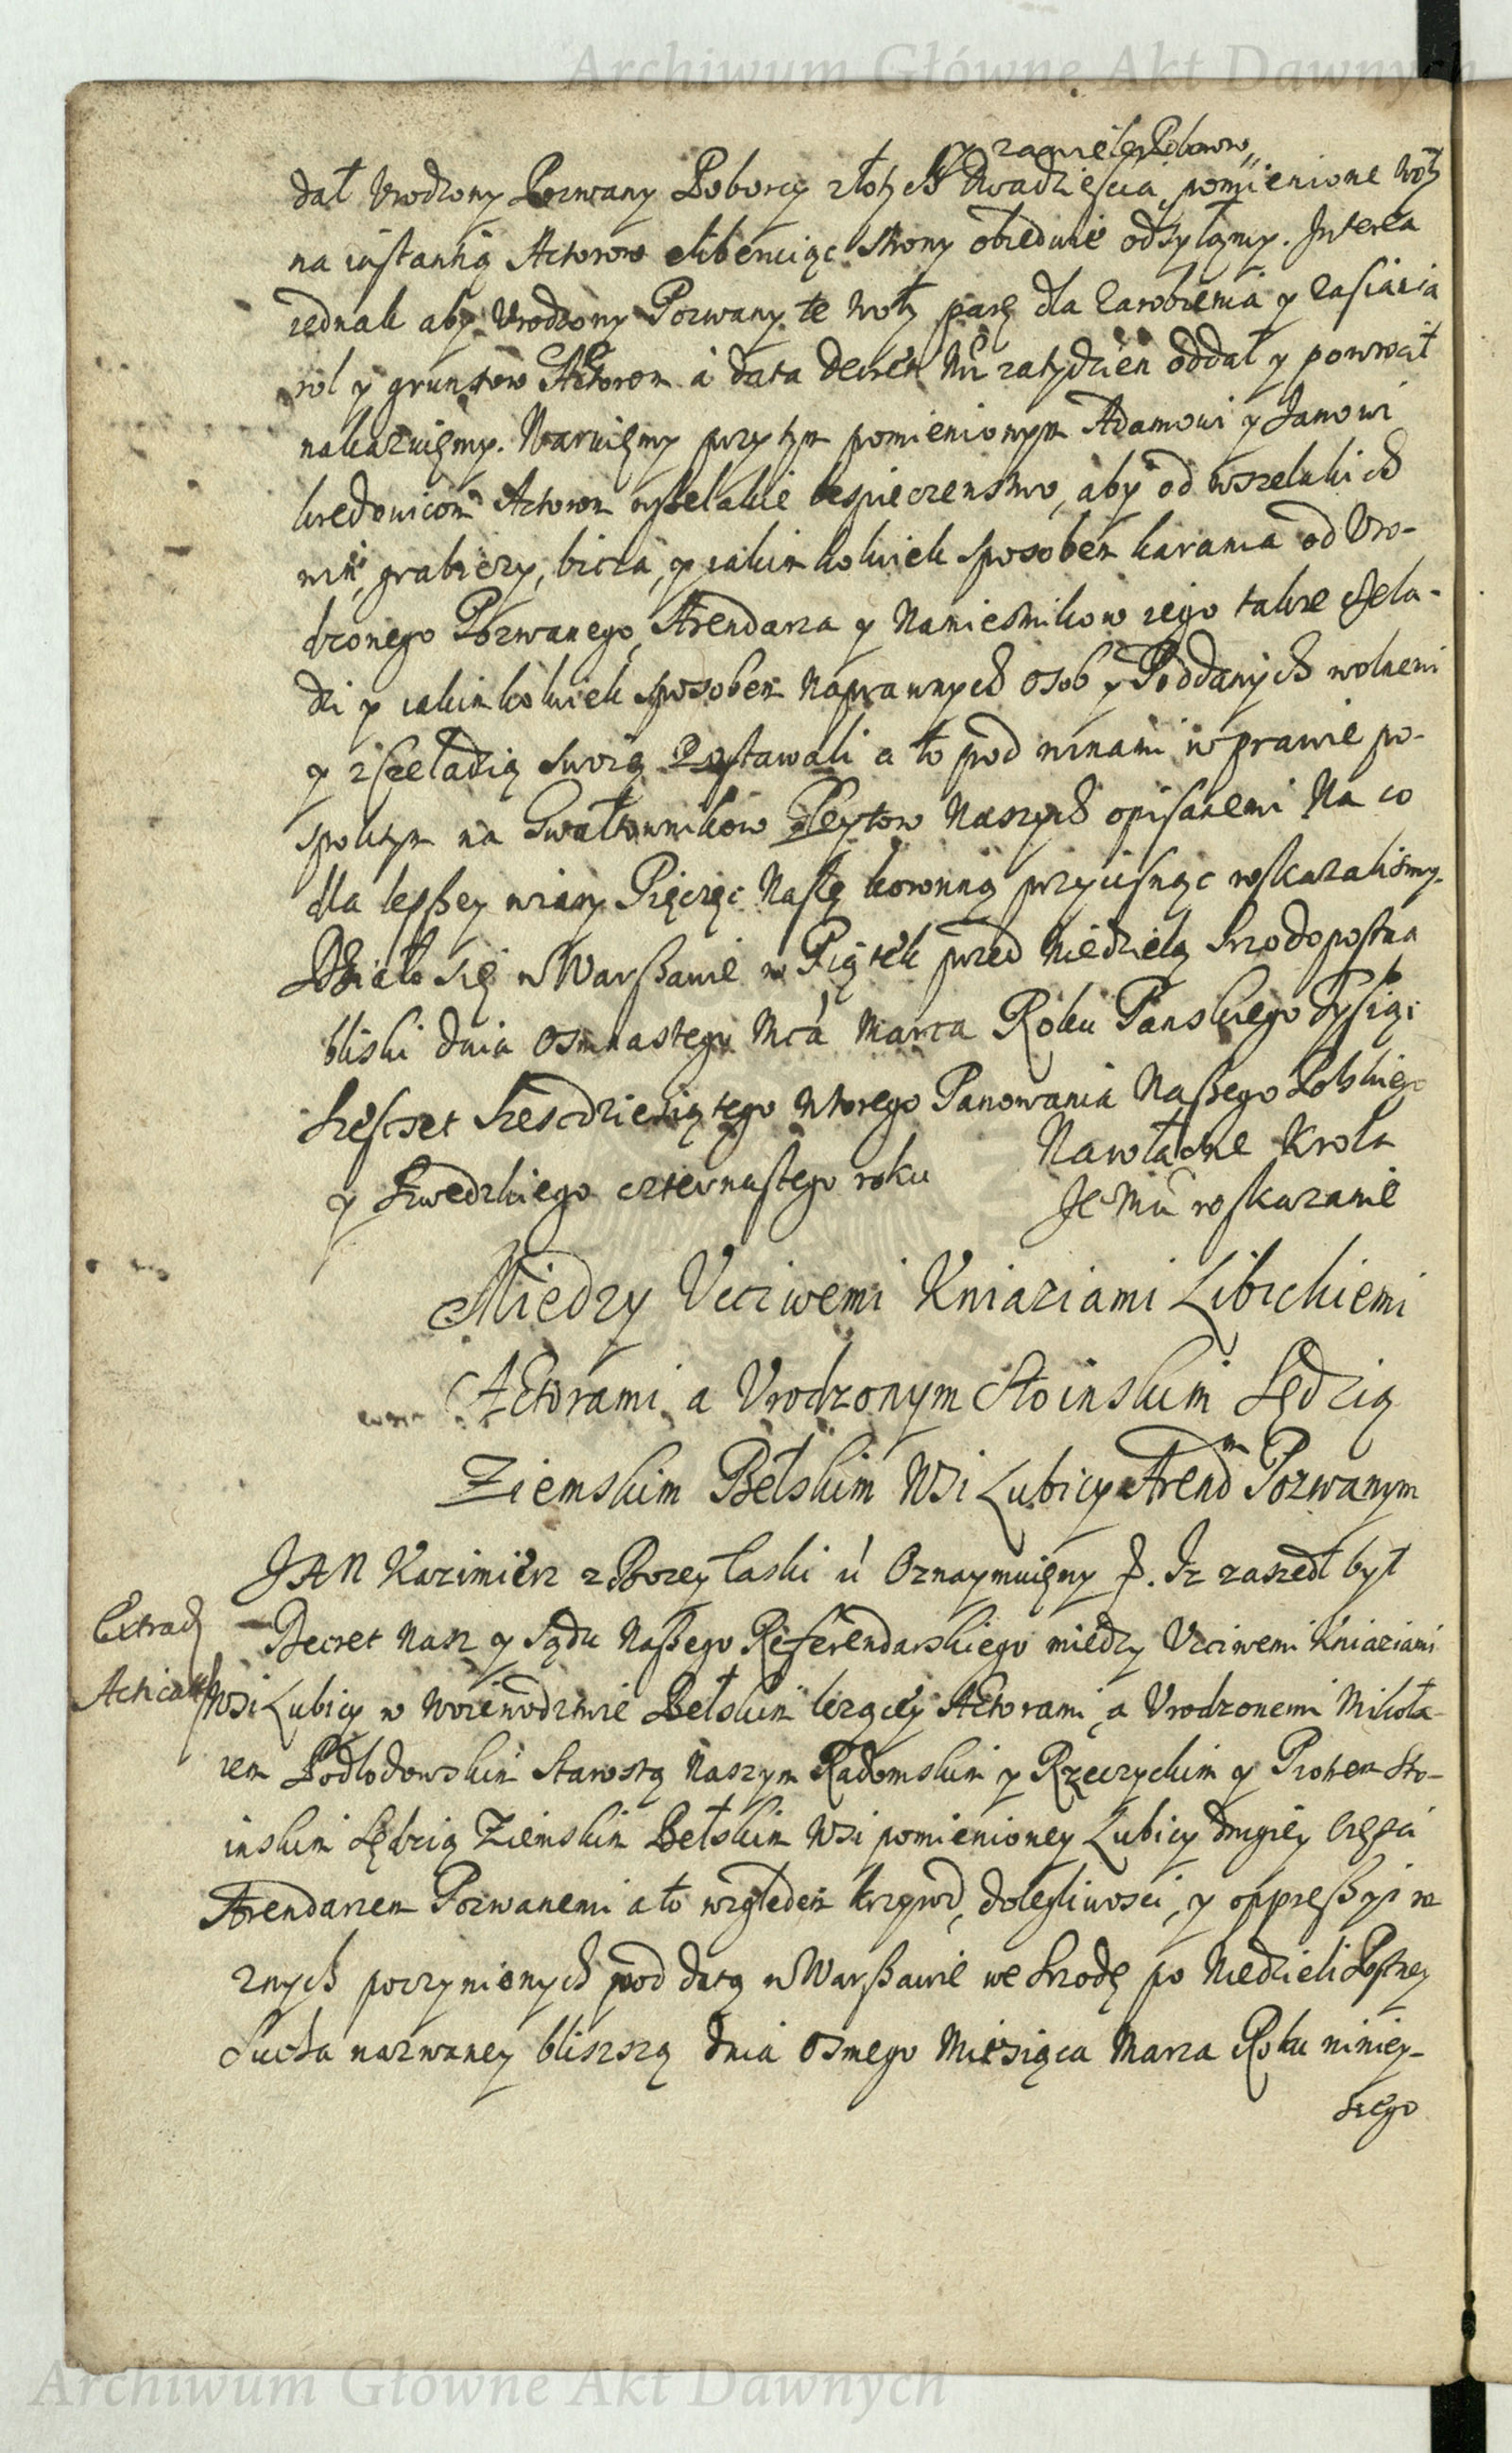 Archiwum Główne Akt Dawnych
y za wiele Poborow
dał Vrodzony Pozwany Poborcy złotych dwadziescia, pomienione woły
na instantią Actorow eliberuiąc strony obiedwie odsyłąmy. Interea
iednak aby Vrodzony Pozwany te woły parę dla zarobienia y zasiania
rol y gruntow Actorom á data decreti Nri zatydzien oddał y powrocił
nakazuięmy. Waruięmy przytym pomienionym Adamowi y Janowi
Actorom wszelakie bespieczenstwo, aby od wszelakich
win, grabiezy, bicia, y iakimkolwiek sposobem karania od Vro-
dzonego Pozwanego, Arendarza y Namiesnikow iego takze czela-
dzi y iakimkolwiek sposobem naprawnych osob y Poddanych wolnemi
y z czeladią swoią zostawali a to pod winami w prawie po-
spolitym na Gwałtownikow Gleytow Naszych opisanemi Na co
dla lepszey wiary Pięczęc Naszę koronną przycisnąc roskazalismy.
Działo się w Warszawie w Piątek przed Niedzielą Srzodopostna
bliski dnia osmnastego Mca Marca Roku Panskiego Tysiąc
Szesczet szescdziesiątego wtorego Panowania Naszego Polskiego
y Szwedzkiego czternastego roku
Nawłasne Krola
Je Mci roskazanie
Miedzy Vcciwemi Kniaziami Libickiemi
Actorami a Vrodzonym Stoinskim Sędzią
Ziemskim Bełskim Wsi Lubicy Arendm Pozwanym
JAN Kazimierz z Bozey Łaski &c Oznaymuięmy &. Iz zaszedł był
Extrad
Decret Nasz y Sądu Naszego Referendarskiego miedzy Vcciwemi Kniaziami
Acticat
Wsi Lubicy w Woiewodztwie Bełskim lezącey Actorami, a Vrodzonemi Mikoła-
iem Podlodowskim Starostą Naszym Radomskim y Rzeczyckim y Piotrem Sto-
inskim Sędzią Ziemskim Bełskim Wsi pomienioney Lubicy drugiey częsci
Arendarzem Pozwanemi a to względem krzywd, dolegliwosci, y oppressyi ro
znych poczynionych pod datą w Warszawie we Srzodę po Niedzieli Postney
Sucha nazwaney bliszszą dnia osmego Miesiąca Marca Roku niniey-
szego
Archiwum Główne Akt Dawnych